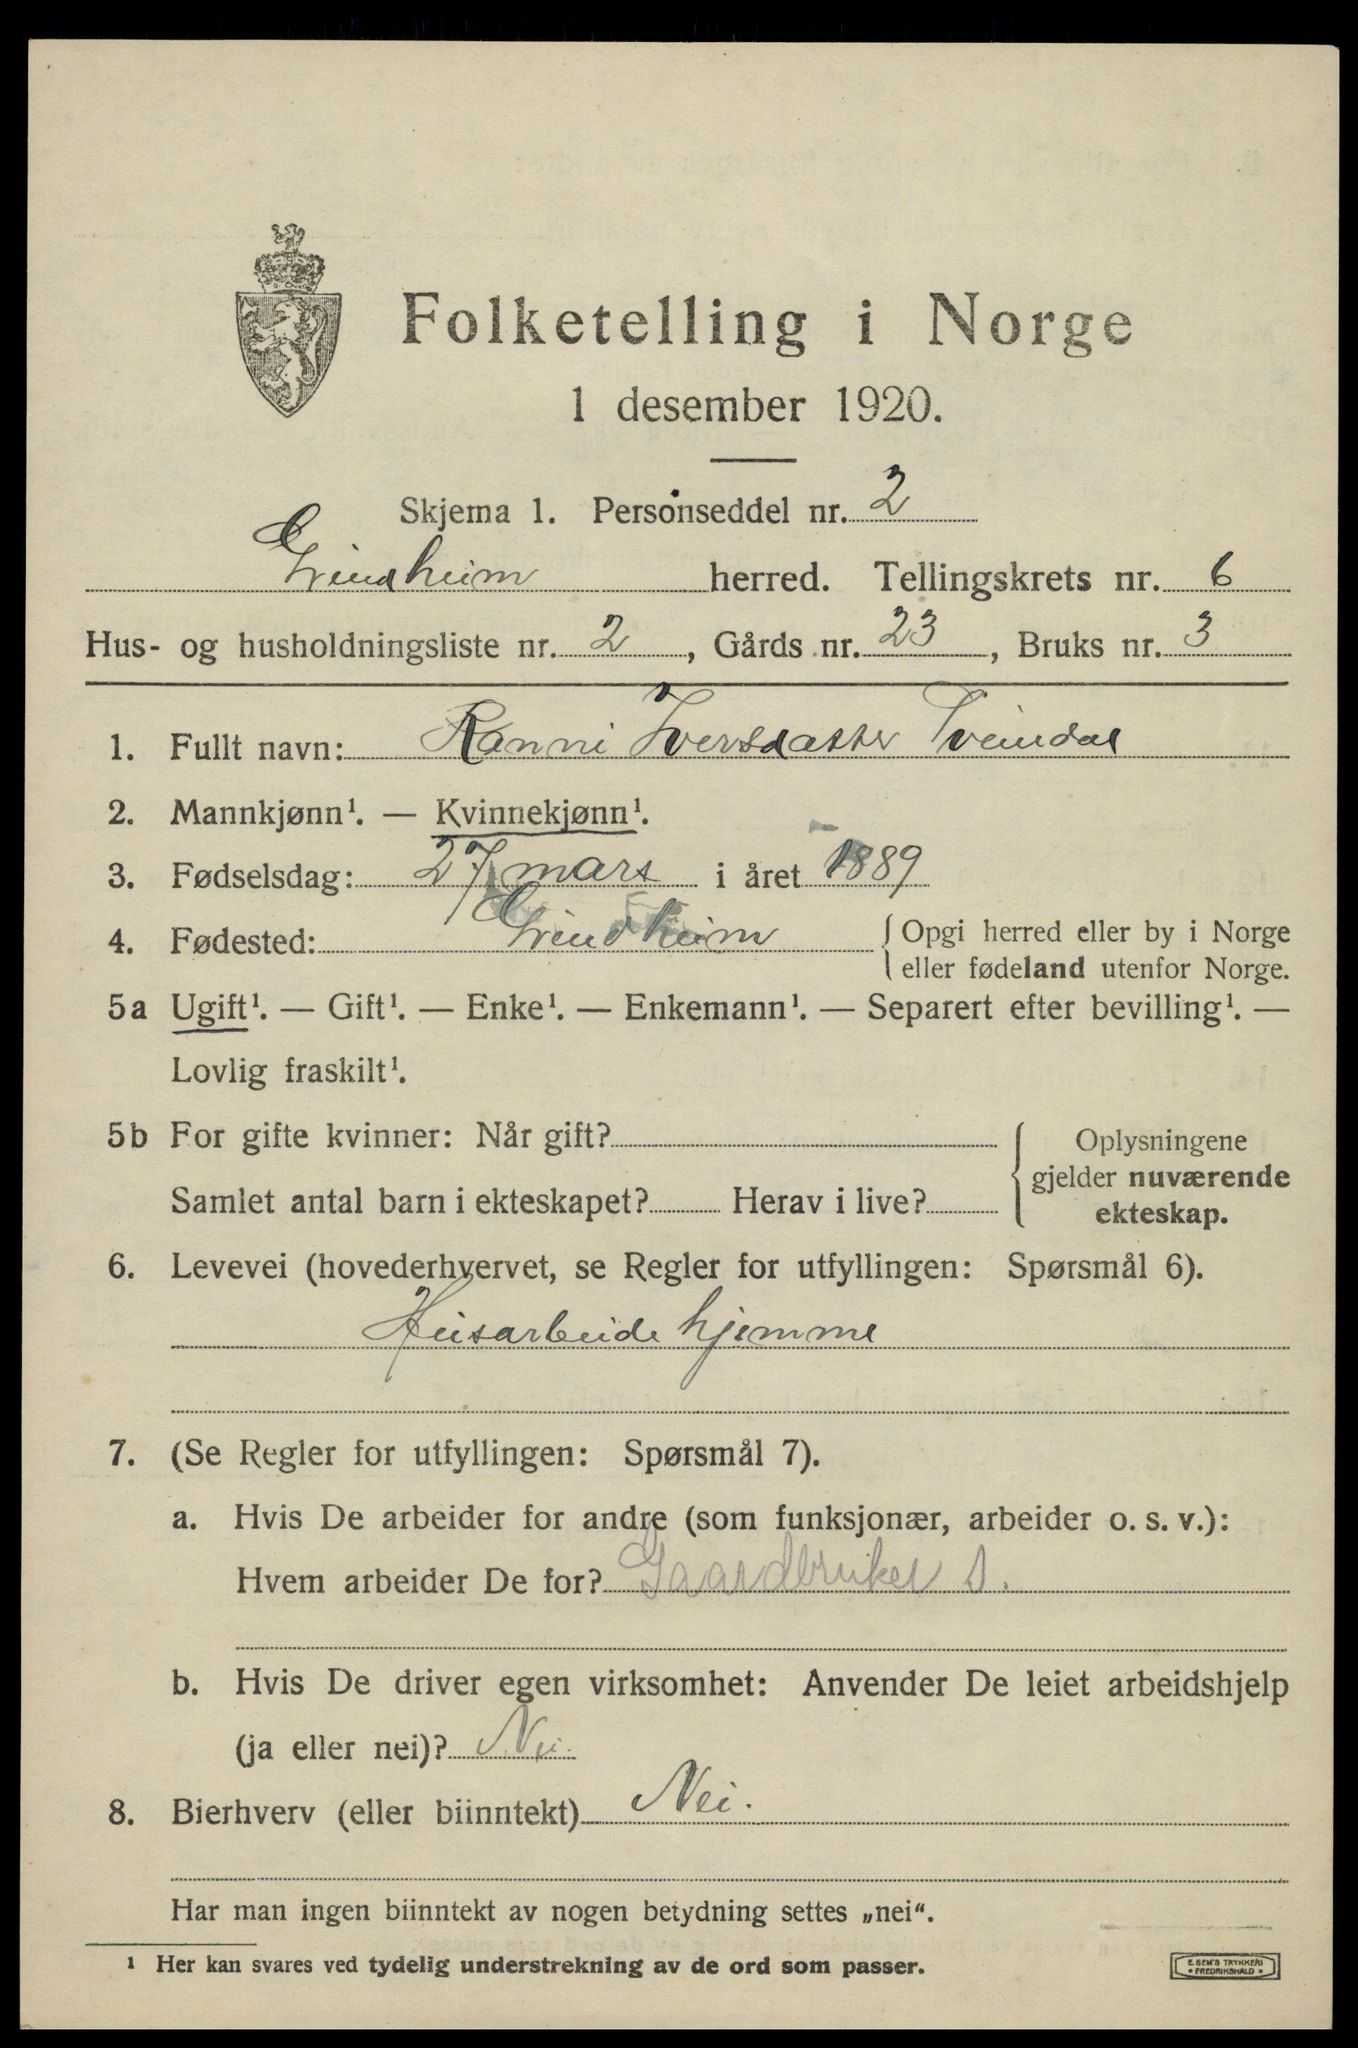 Folketelling i Norge
1 desember 1920.
Skjema 1. Personseddel nr. 2
Grindheim herred. Tellingskrets nr. 6
Hus- og husholdningsliste nr. 2, Gårds nr. 23, Bruks nr. 3
1. Fullt navn: Ranni Iversdatter Tveindal
2. Mannkjønn¹. — Kvinnekjønn¹.
3. Fødselsdag: 27/ mars i året 1889
4. Fødested: Grindheim { Opgi herred eller by i Norge
eller fødeland utenfor Norge.
5a Ugift¹. — Gift¹. — Enke¹. — Enkemann¹. — Separert efter bevilling¹. —
Lovlig fraskilt¹.
5b For gifte kvinner: Når gift?
Samlet antal barn i ekteskapet? Herav i live?
Oplysningene
gjelder nuværende
ekteskap.
6. Levevei (hovederhvervet, se Regler for utfyllingen: Spørsmål 6).
Husarbeide hjemme
7. (Se Regler for utfyllingen: Spørsmål 7).
a. Hvis De arbeider for andre (som funksjonær, arbeider o. s. v.):
Hvem arbeider De for? Gaardbruker s.
b. Hvis De driver egen virksomhet: Anvender De leiet arbeidshjelp
(ja eller nei)? Nei.
8. Bierhverv (eller biinntekt) Nei.
Har man ingen biinntekt av nogen betydning settes „nei“.
¹ Her kan svares ved tydelig understrekning av de ord som passer.
E. SEM'S TRYKKERI
FREDRIKSHALD